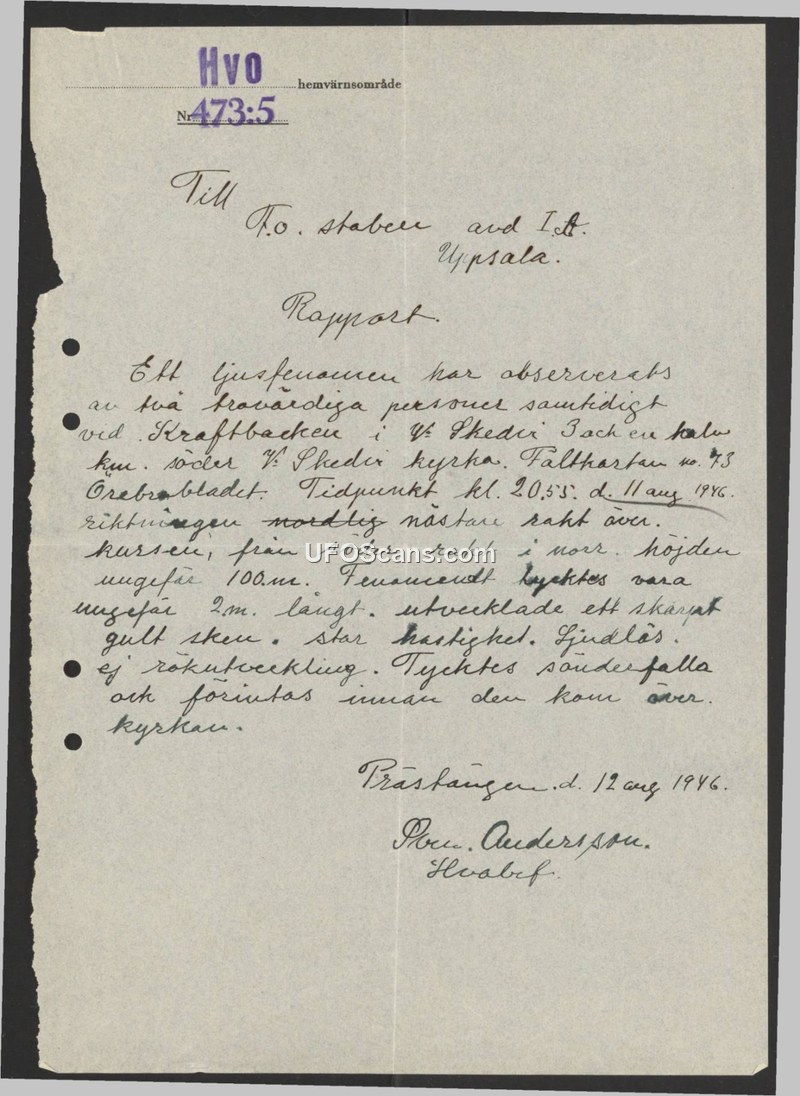 Hvo
hemvärnsområde
Nr 473:5
Till
F.o. staben avd I.
Uppsala.
Rapport.
Ett ljusfenomen har observerats
av två trovärdiga personer samtidigt
vid Kraftbacken i V. Skedvi 3 och en halv
km. söder V. Skedvi kyrka. Fältkartan no. 73
Örebrobladet. Tidpunkt kl. 20.55. d. 11 aug 1946.
riktningen nordlig nästan rakt över.
kursen, från rakt i norr. höjden
ungefär 100.m. Fenomenet tycktes vara
ungefär 2.m. långt. utvecklade ett skarpt
gult sken. stor hastighet. Ljudlös.
ej rökutveckling. Tycktes sönderfalla
och förintas innan den kom över.
kyrkan.
Prästängen. d. 12 aug 1946.
Sven. Andersson.
Hvobef.
UFOScans.com